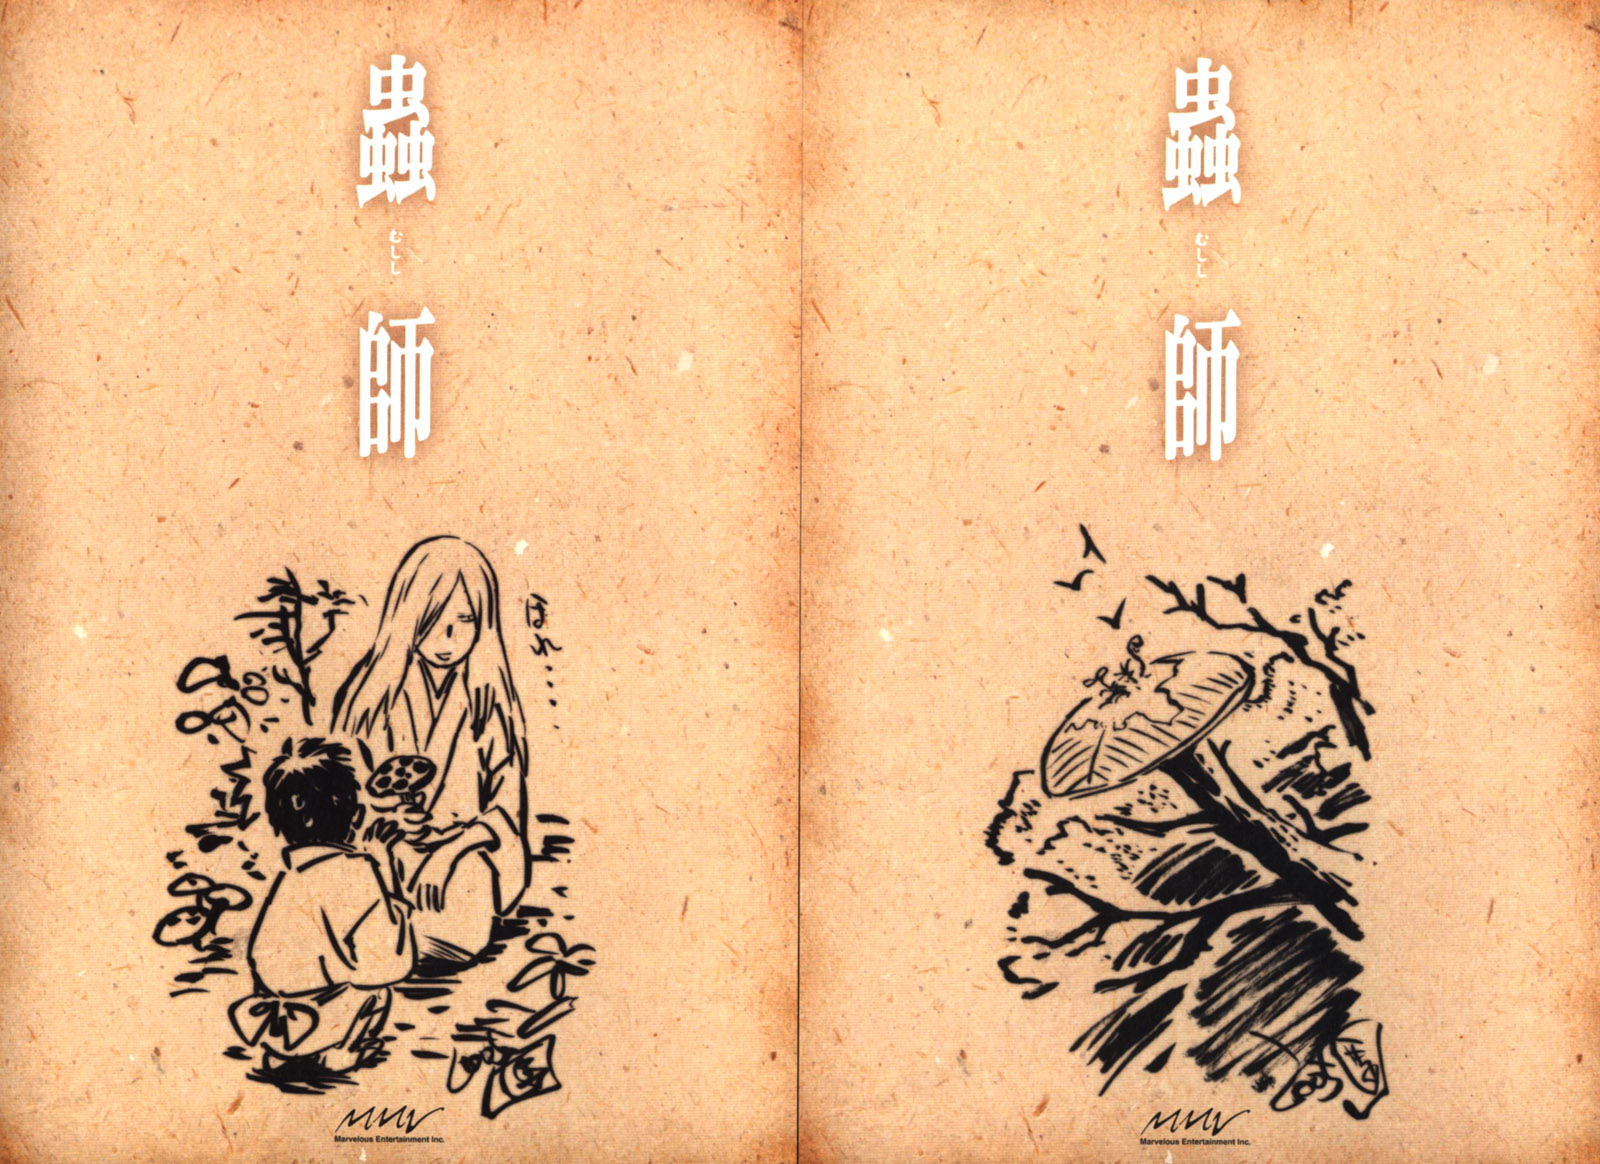 蟲師
むしし
ほれ・・・・
Marvelous Entertainment Inc.
蟲師
むしし
Marvelous Entertainment Inc.